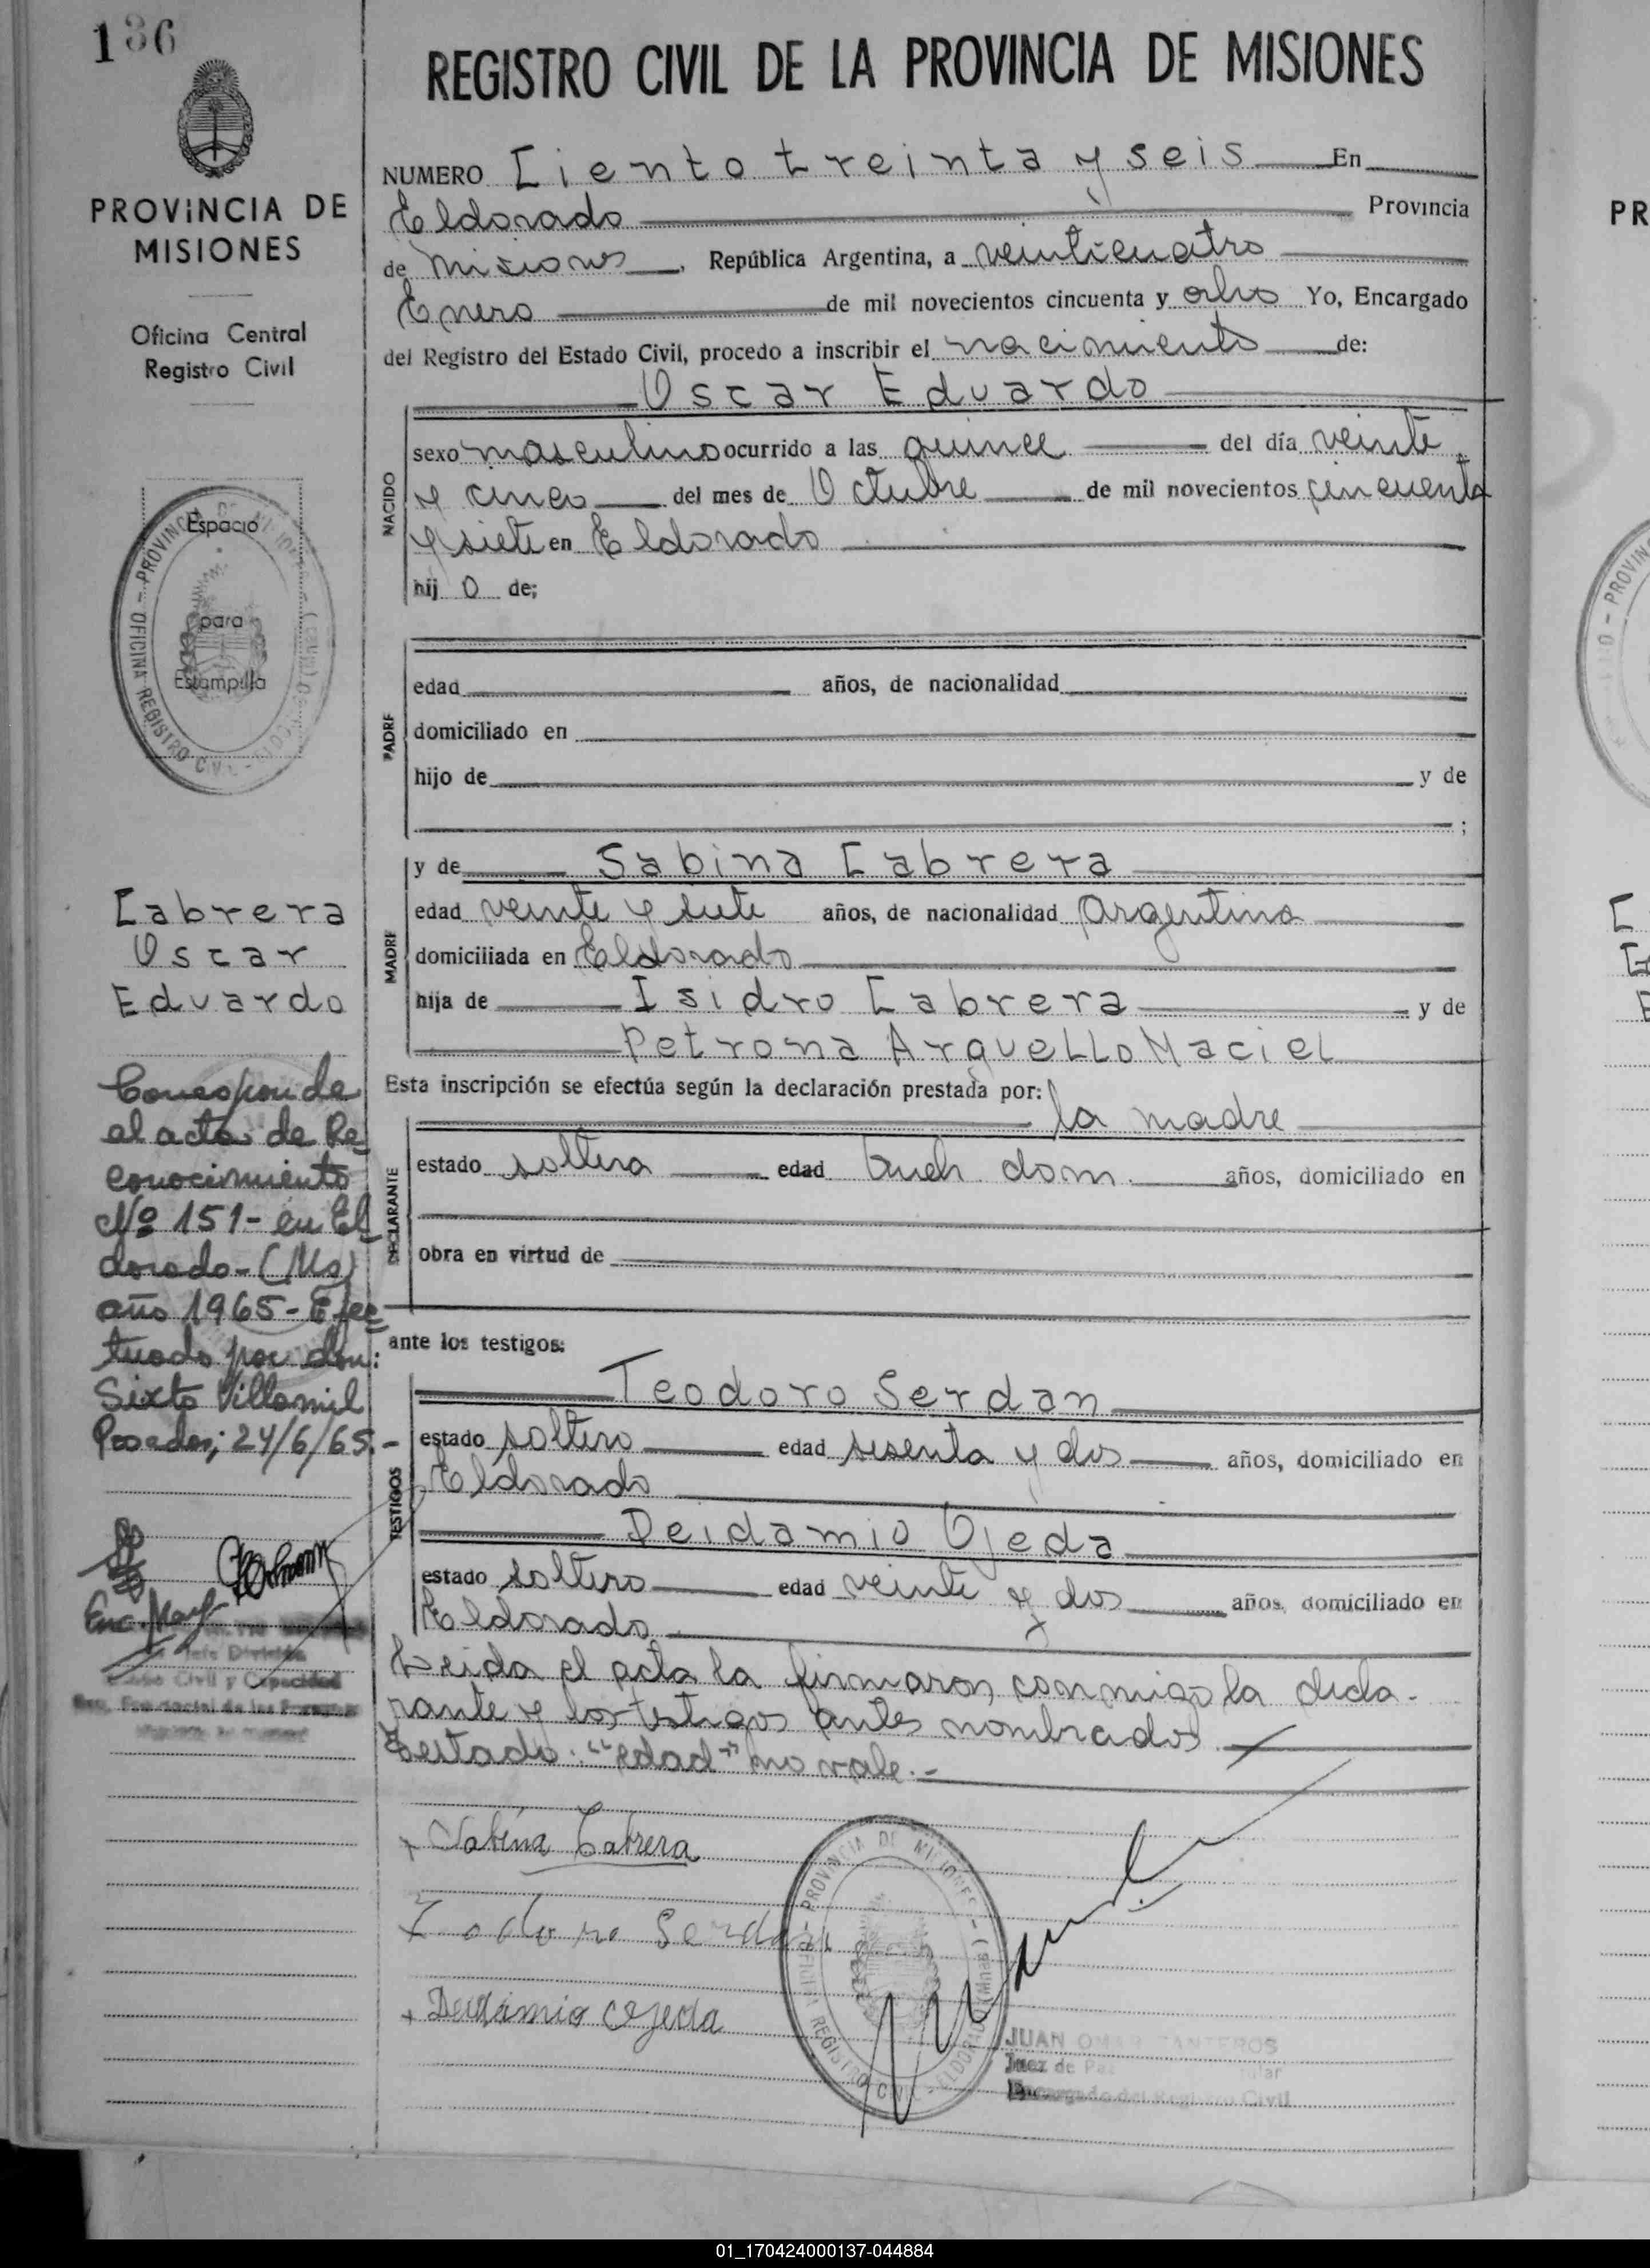 136
PROVINCIA DE
MISIONES
Oficina Central
Registro Civil
Espacio
para
Estampilla
PROVINCIA DE MISIONES
OFICINA REGISTRO CIVIL
Cabrera
Oscar
Eduardo
Corresponde
al acta de Re
conocimiento
Nº 151- en El
dorado-(Ms)
año 1965- Efec
tuado por don:
Sixto Villamil
Posadas; 24/6/65.-
Jefe División
Civil y Capacidad
REGISTRO CIVIL DE LA PROVINCIA DE MISIONES
NUMERO Ciento treinta y seis En
Eldorado Provincia
de Misiones, República Argentina, a veinticuatro
Enero de mil novecientos cincuenta y ocho Yo, Encargado
del Registro del Estado Civil, procedo a inscribir el nacimiento de:
Oscar Eduardo
NACIDO
sexo masculino ocurrido a las quince del día veinte
y cinco del mes de Octubre de mil novecientos cincuenta
y siete en Eldorado
hij o de;
PADRE
edad años, de nacionalidad
domiciliado en
hijo de y de
;
MADRE
y de Sabina Cabrera
edad veinte y siete años, de nacionalidad Argentina
domiciliada en Eldorado
hija de Isidro Cabrera y de
Petrona Arguello Maciel
Esta inscripción se efectúa según la declaración prestada por:
la madre
DECLARANTE
estado soltera edad dom. años, domiciliado en
obra en virtud de
ante los testigos:
Teodoro Serdan
TESTIGOS
estado soltero edad sesenta y dos años, domiciliado en
Eldorado
Deidamio Ojeda
estado soltero edad veinte y dos años, domiciliado en
Eldorado
Leida el acta la firmaron conmigo la decla-
rante y los testigos antes nombrados
Testado: "edad" no vale.-
Sabina Cabrera
Teodoro Serdan
Deidamio Ojeda
PROVINCIA DE MISIONES
REGISTRO CIVIL - ELDORADO
JUAN OMAR
Juez de
Encargado del Registro Civil
PR
01_170424000137-044884